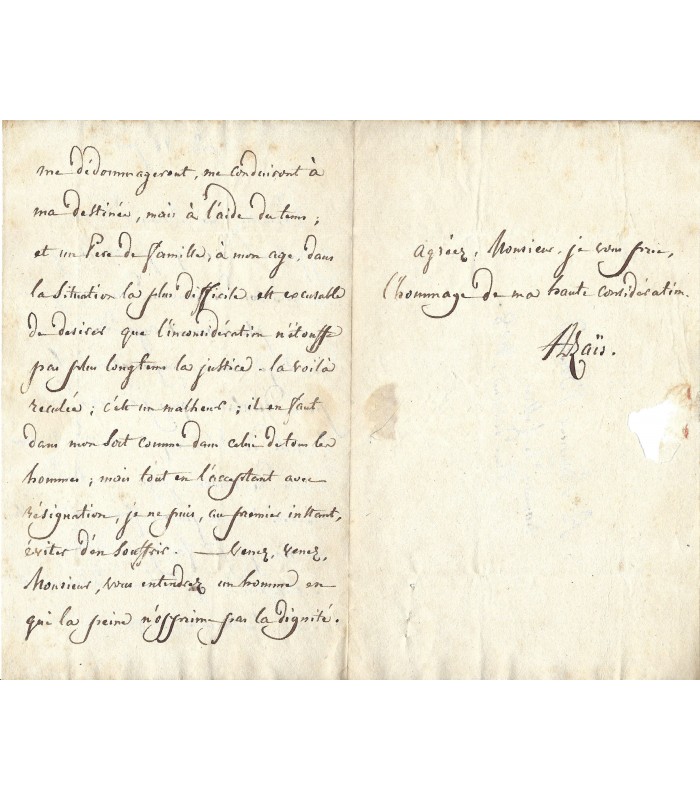 me dédommageront, me conduiront à
ma destinée, mais à l'aide du tems ;
et un Père de famille, à mon age, dans
la situation la plus difficile est excusable
de desirer que l'inconsidération n'étouffe
pas plus longtems la justice. la voilà
reculée ; c'est un malheur ; il en faut
dans mon sort comme dans celui de tous les
hommes ; mais tout en l'acceptant avec
résignation, je ne puis, au premier instant,
éviter d'en souffrir. — Venez, venez,
Monsieur, vous entendrez un homme en
qui la peine n'opprime pas la dignité.
agréez, Monsieur, je vous prie,
l'hommage de ma haute considération.
Azaïs.